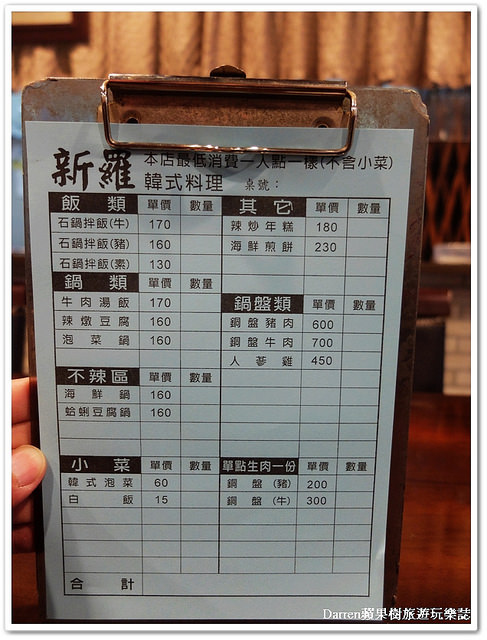 新羅 本店最低消費一人點一樣(不含小菜)
韓式料理 桌號：
飯類 單價 數量
石鍋拌飯(牛) 170
石鍋拌飯(豬) 160
石鍋拌飯(素) 130
鍋類 單價 數量
牛肉湯飯 170
辣燉豆腐 160
泡菜鍋 160
不辣區 單價 數量
海鮮鍋 160
蛤蜊豆腐鍋 160
小菜 單價 數量
韓式泡菜 60
白飯 15
合計
其它 單價 數量
辣炒年糕 180
海鮮煎餅 230
鍋盤類 單價 數量
銅盤豬肉 600
銅盤牛肉 700
人蔘雞 450
單點生肉一份 單價 數量
銅盤(豬) 200
銅盤(牛) 300
Darren蘋果樹旅遊玩樂誌